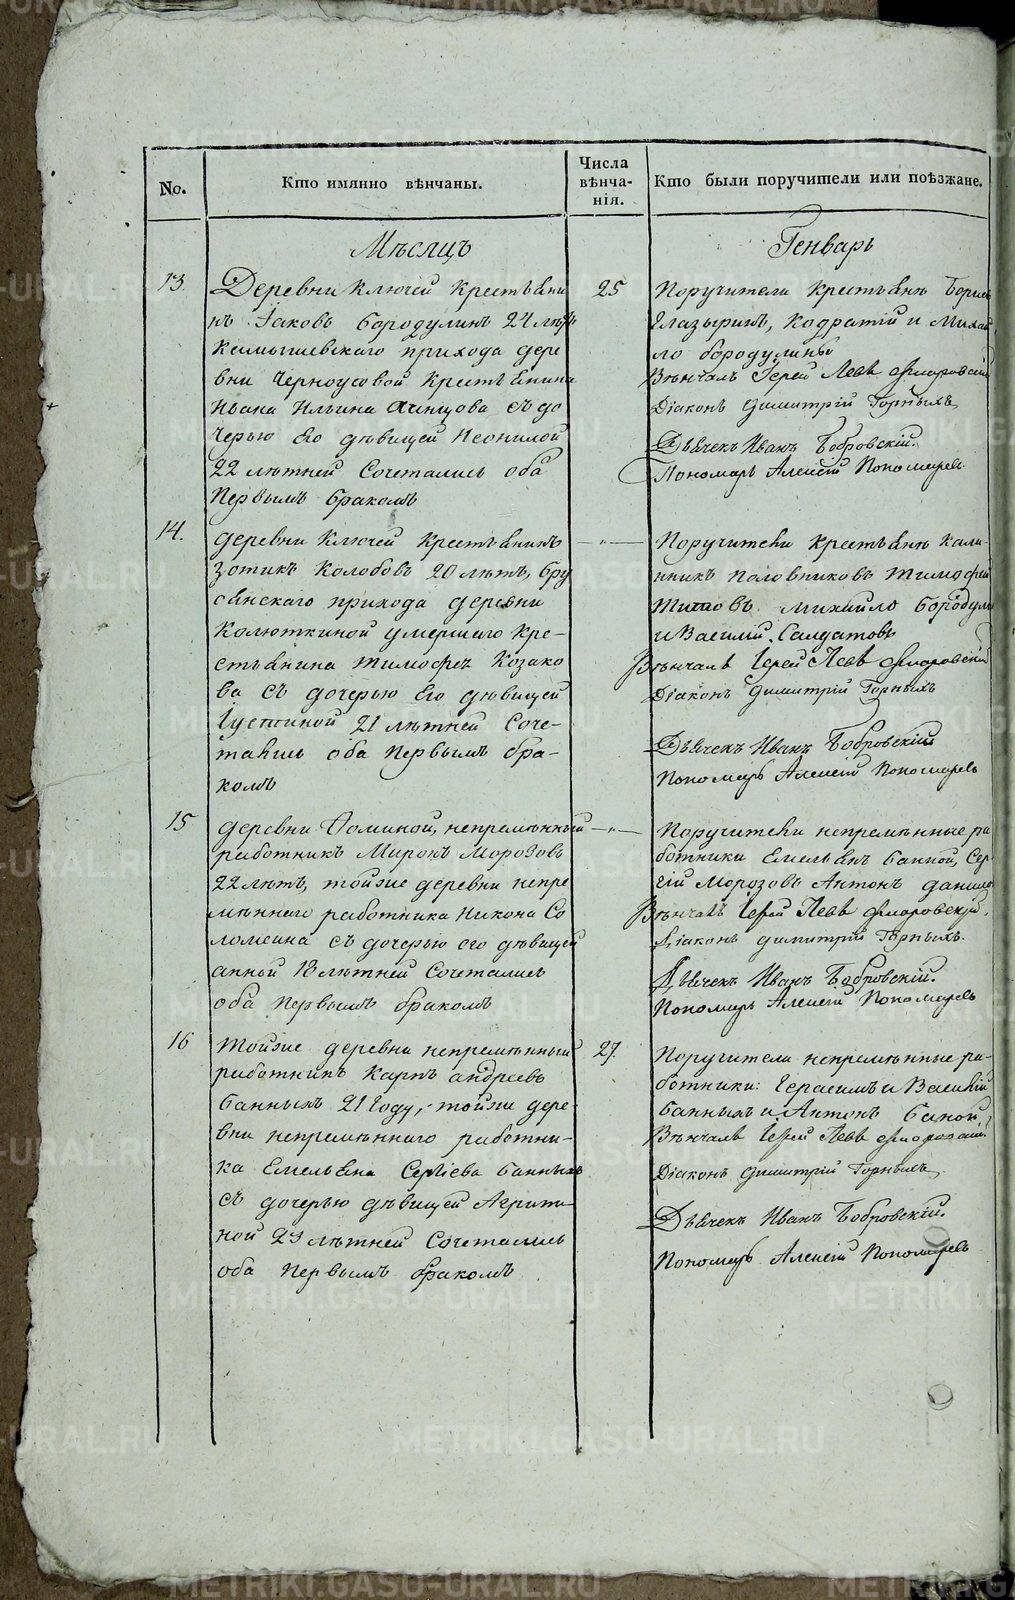 No.
Кто имянно вѣнчаны.
Числа
вѣнча-
нія.
Кто были поручители или поѣзжане.
Мѣсяцъ
Генварь
13
Деревни Ключей крестьяни
нъ Іаковъ Бородулинъ 24 лѣтъ
Камышевскаго прихода дере
вни Черноусовой крестьянина
Ивана Ильина съ до
черью его дѣвицей Неонилой
22 лѣтней Сочетались оба
первымъ бракомъ
25
Поручители крестьяне Борисъ
Глазыринъ, Кодратій и Михай
ло бородулины
Вѣнчалъ Іерей Левъ Флоровскій
Діаконъ Димитрій Горныхъ
Дьячекъ Иванъ Бобровскій.
Пономарь Алексій Пономаревъ
14.
деревни Ключей крестьянинъ
Зотикъ Колобовъ 20 лѣтъ, бру
сянскаго прихода деревни
Колюткиной умершаго кре-
стьянина Тимофея Козако
ва съ дочерью его дѣвицей
Іустиной 21 лѣтней Соче-
тались оба первымъ бра-
комъ
—„—
Поручители крестьяне Кали-
нникъ Половниковъ Тимофей
Титовъ Михайло Бородули
и Василій Салдатовъ
Вѣнчалъ Іерей Левъ Флоровскій
Діаконъ Димитрій Горныхъ
Дьячекъ Иванъ Бобровскій
Пономарь Алексій Пономаревъ
15
деревни Фоминой, непремѣнный
работникъ Миронъ Морозовъ
22 лѣтъ, тойже деревни непре
мѣннаго работника Никона Со
ломеина съ дочерью его дѣвицей
анной 18 лѣтней Сочетались
оба первымъ бракомъ
—„—
Поручители непремѣнные ра
ботники Емельянъ банной, Сер
гій Морозовъ Антонъ
Вѣнчалъ Іерей Левъ Флоровскій.
Діаконъ димитрій Горныхъ.
Дьячекъ Иванъ Бобровскій.
Пономарь Алексій Пономаревъ
16
тойже деревни непремѣнный
работникъ Карпъ андреевъ
банныхъ 21 году, тойже дере-
вни непремѣннаго работни-
ка Емельяна Сергіева банныхъ
съ дочерью дѣвицей Агрипи-
ной 23 лѣтней Сочетались
оба первымъ бракомъ
27.
Поручители непремѣнные ра-
ботники: Герасимъ и Василій
банныхъ и Антонъ баной
Вѣнчалъ Іерей Левъ Флоровскій
Діаконъ Димитрій Горныхъ
Дьячекъ Иванъ Бобровскій.
Пономарь Алексій Пономаревъ
METRIKI.GASO-URAL.RU